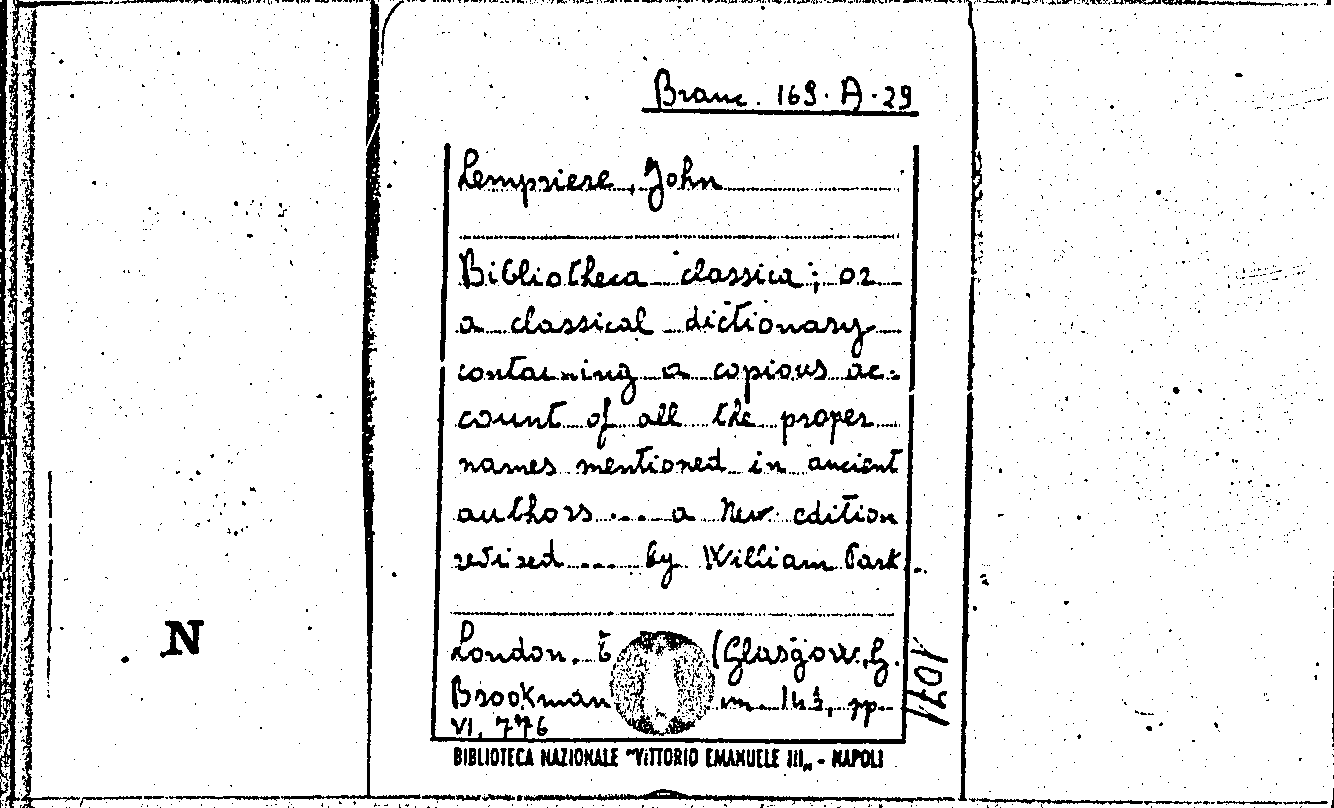 Branc. 169. A. 29
Lempriere, John
Bibliotheca classica; or
a classical dictionary
containing a copious ac-
count of all the proper
names mentioned in ancient
authors.... a New edition
revised .... by William Park.
London, (Glasgow, G.
Brookman
VI, 776
1071
N
BIBLIOTECA NAZIONALE "VITTORIO EMANUELE III„ - NAPOLI